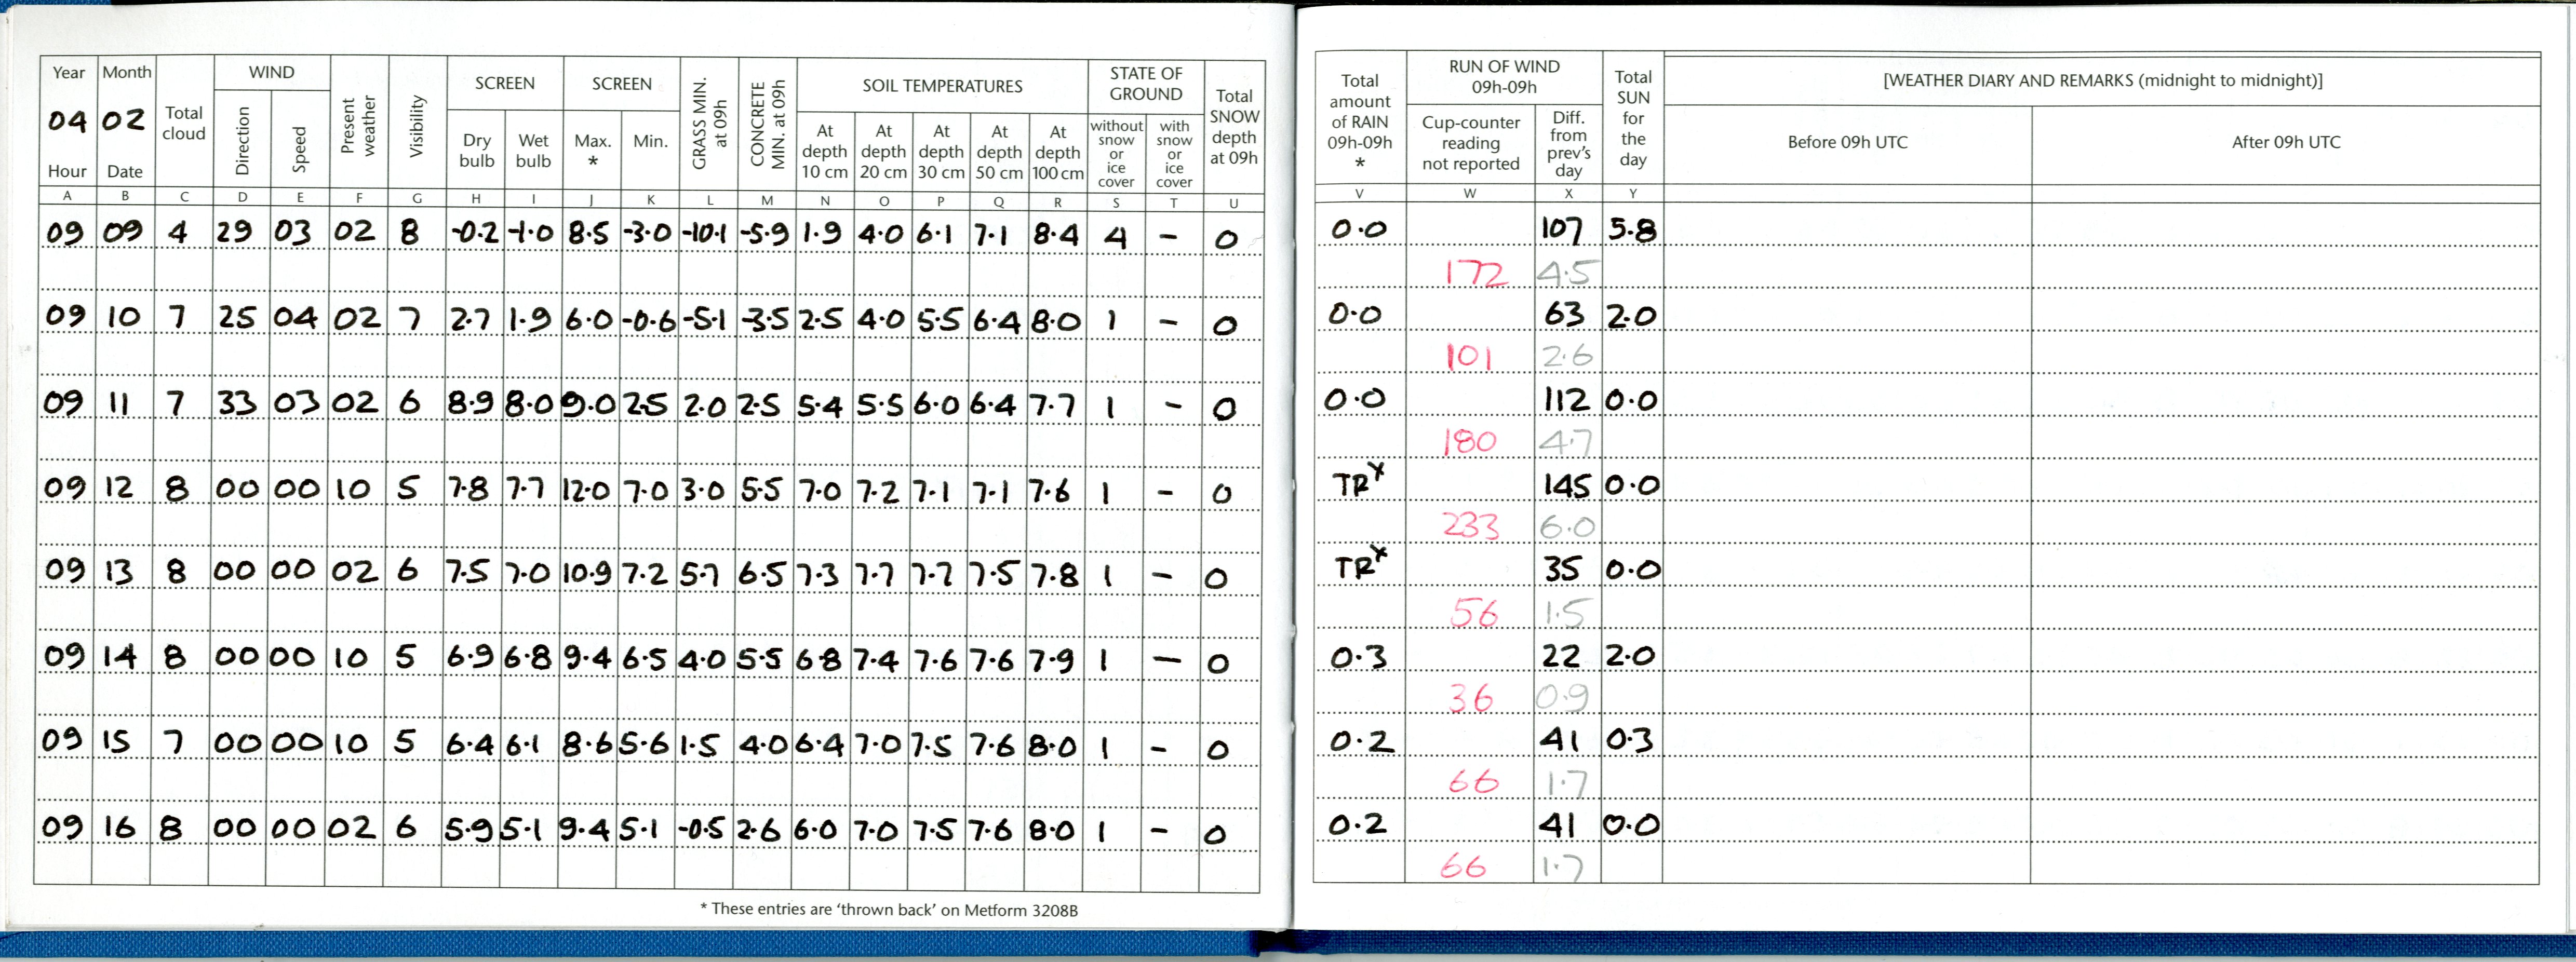 Year Month Total cloud WIND Present weather Visibility SCREEN SCREEN GRASS MIN. at 09h CONCRETE MIN. at 09h SOIL TEMPERATURES STATE OF GROUND Total SNOW depth at 09h
04 02
Hour Date Direction Speed Dry bulb Wet bulb Max. * Min. At depth 10 cm At depth 20 cm At depth 30 cm At depth 50 cm At depth 100 cm without snow or ice cover with snow or ice cover
A B C D E F G H I J K L M N O P Q R S T U
09 09 4 29 03 02 8 -0.2 -1.0 8.5 -3.0 -10.1 -5.9 1.9 4.0 6.1 7.1 8.4 4 - 0
09 10 7 25 04 02 7 2.7 1.9 6.0 -0.6 -5.1 -3.5 2.5 4.0 5.5 6.4 8.0 1 - 0
09 11 7 33 03 02 6 8.9 8.0 9.0 2.5 2.0 2.5 5.4 5.5 6.0 6.4 7.7 1 - 0
09 12 8 00 00 10 5 7.8 7.7 12.0 7.0 3.0 5.5 7.0 7.2 7.1 7.1 7.6 1 - 0
09 13 8 00 00 02 6 7.5 7.0 10.9 7.2 5.7 6.5 7.3 7.7 7.7 7.5 7.8 1 - 0
09 14 8 00 00 10 5 6.9 6.8 9.4 6.5 4.0 5.5 6.8 7.4 7.6 7.6 7.9 1 - 0
09 15 7 00 00 10 5 6.4 6.1 8.6 5.6 1.5 4.0 6.4 7.0 7.5 7.6 8.0 1 - 0
09 16 8 00 00 02 6 5.9 5.1 9.4 5.1 -0.5 2.6 6.0 7.0 7.5 7.6 8.0 1 - 0
* These entries are 'thrown back' on Metform 3208B
Total amount of RAIN 09h-09h * RUN OF WIND 09h-09h Total SUN for the day [WEATHER DIARY AND REMARKS (midnight to midnight)]
Cup-counter reading not reported Diff. from prev's day Before 09h UTC After 09h UTC
V W X Y
0.0 107 5.8
172 4.5
0.0 63 2.0
101 2.6
0.0 112 0.0
180 4.7
TRx 145 0.0
233 6.0
TRx 35 0.0
56 1.5
0.3 22 2.0
36 0.9
0.2 41 0.3
66 1.7
0.2 41 0.0
66 1.7